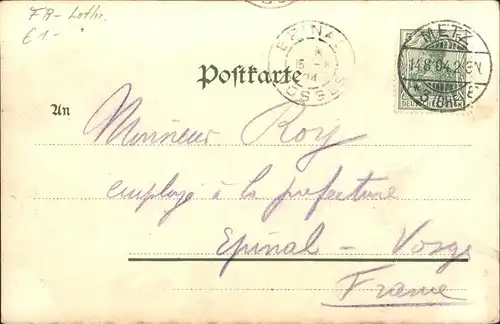 FR-Lothr.
€1-
EPINAL
15 -8
04
VOSGES
METZ
14.8.04.2-3N
DEUTSCHES
Postkarte
An
Monsieur Roy
employé à la préfecture
Epinal - Vosges
France